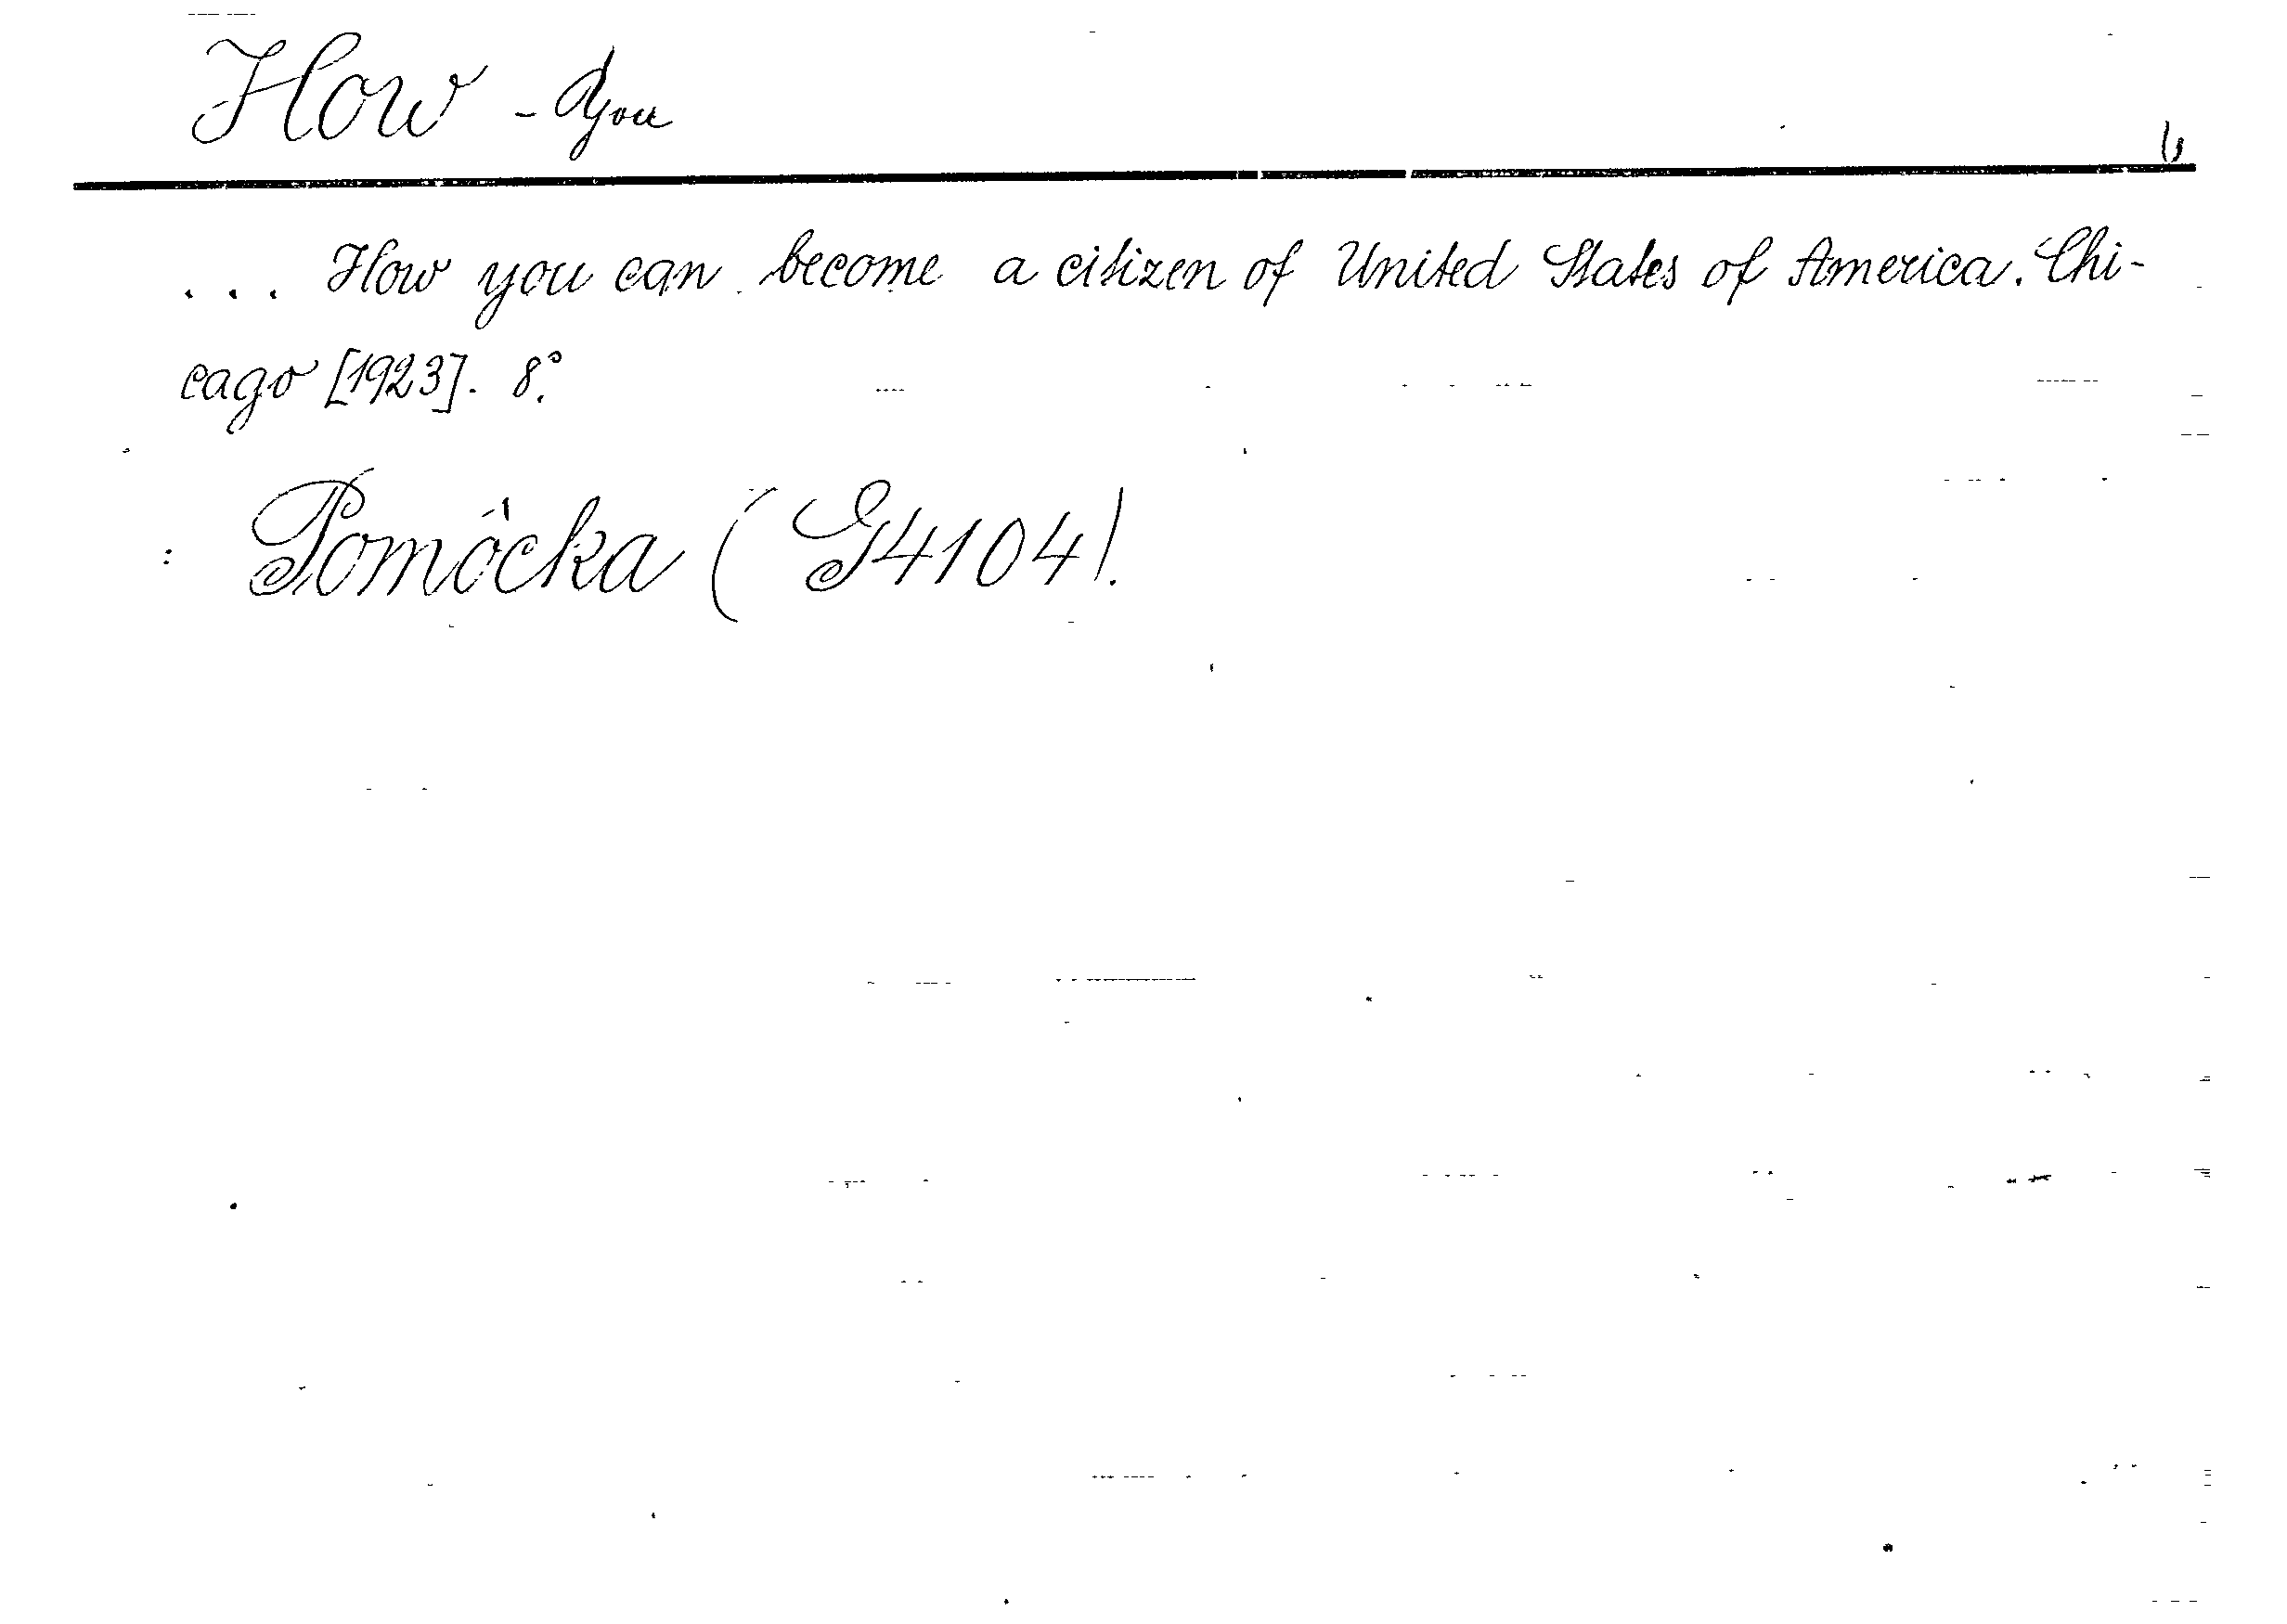 How - you
... How you can become a citizen of United States of America. Chi-
cago [1923]. 8°.
Pomôcka (G4104).